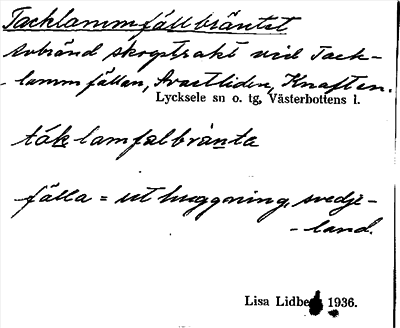 Tacklammfällbräntet
avbränd skogstrakt vid Tack-
-lammfällan, Svartliden, Knaften.
Lycksele sn o. tg, Västerbottens l.
táklamfalbränta
fälla = uthuggning, svedje-
-land.
Lisa Lidberg 1936.